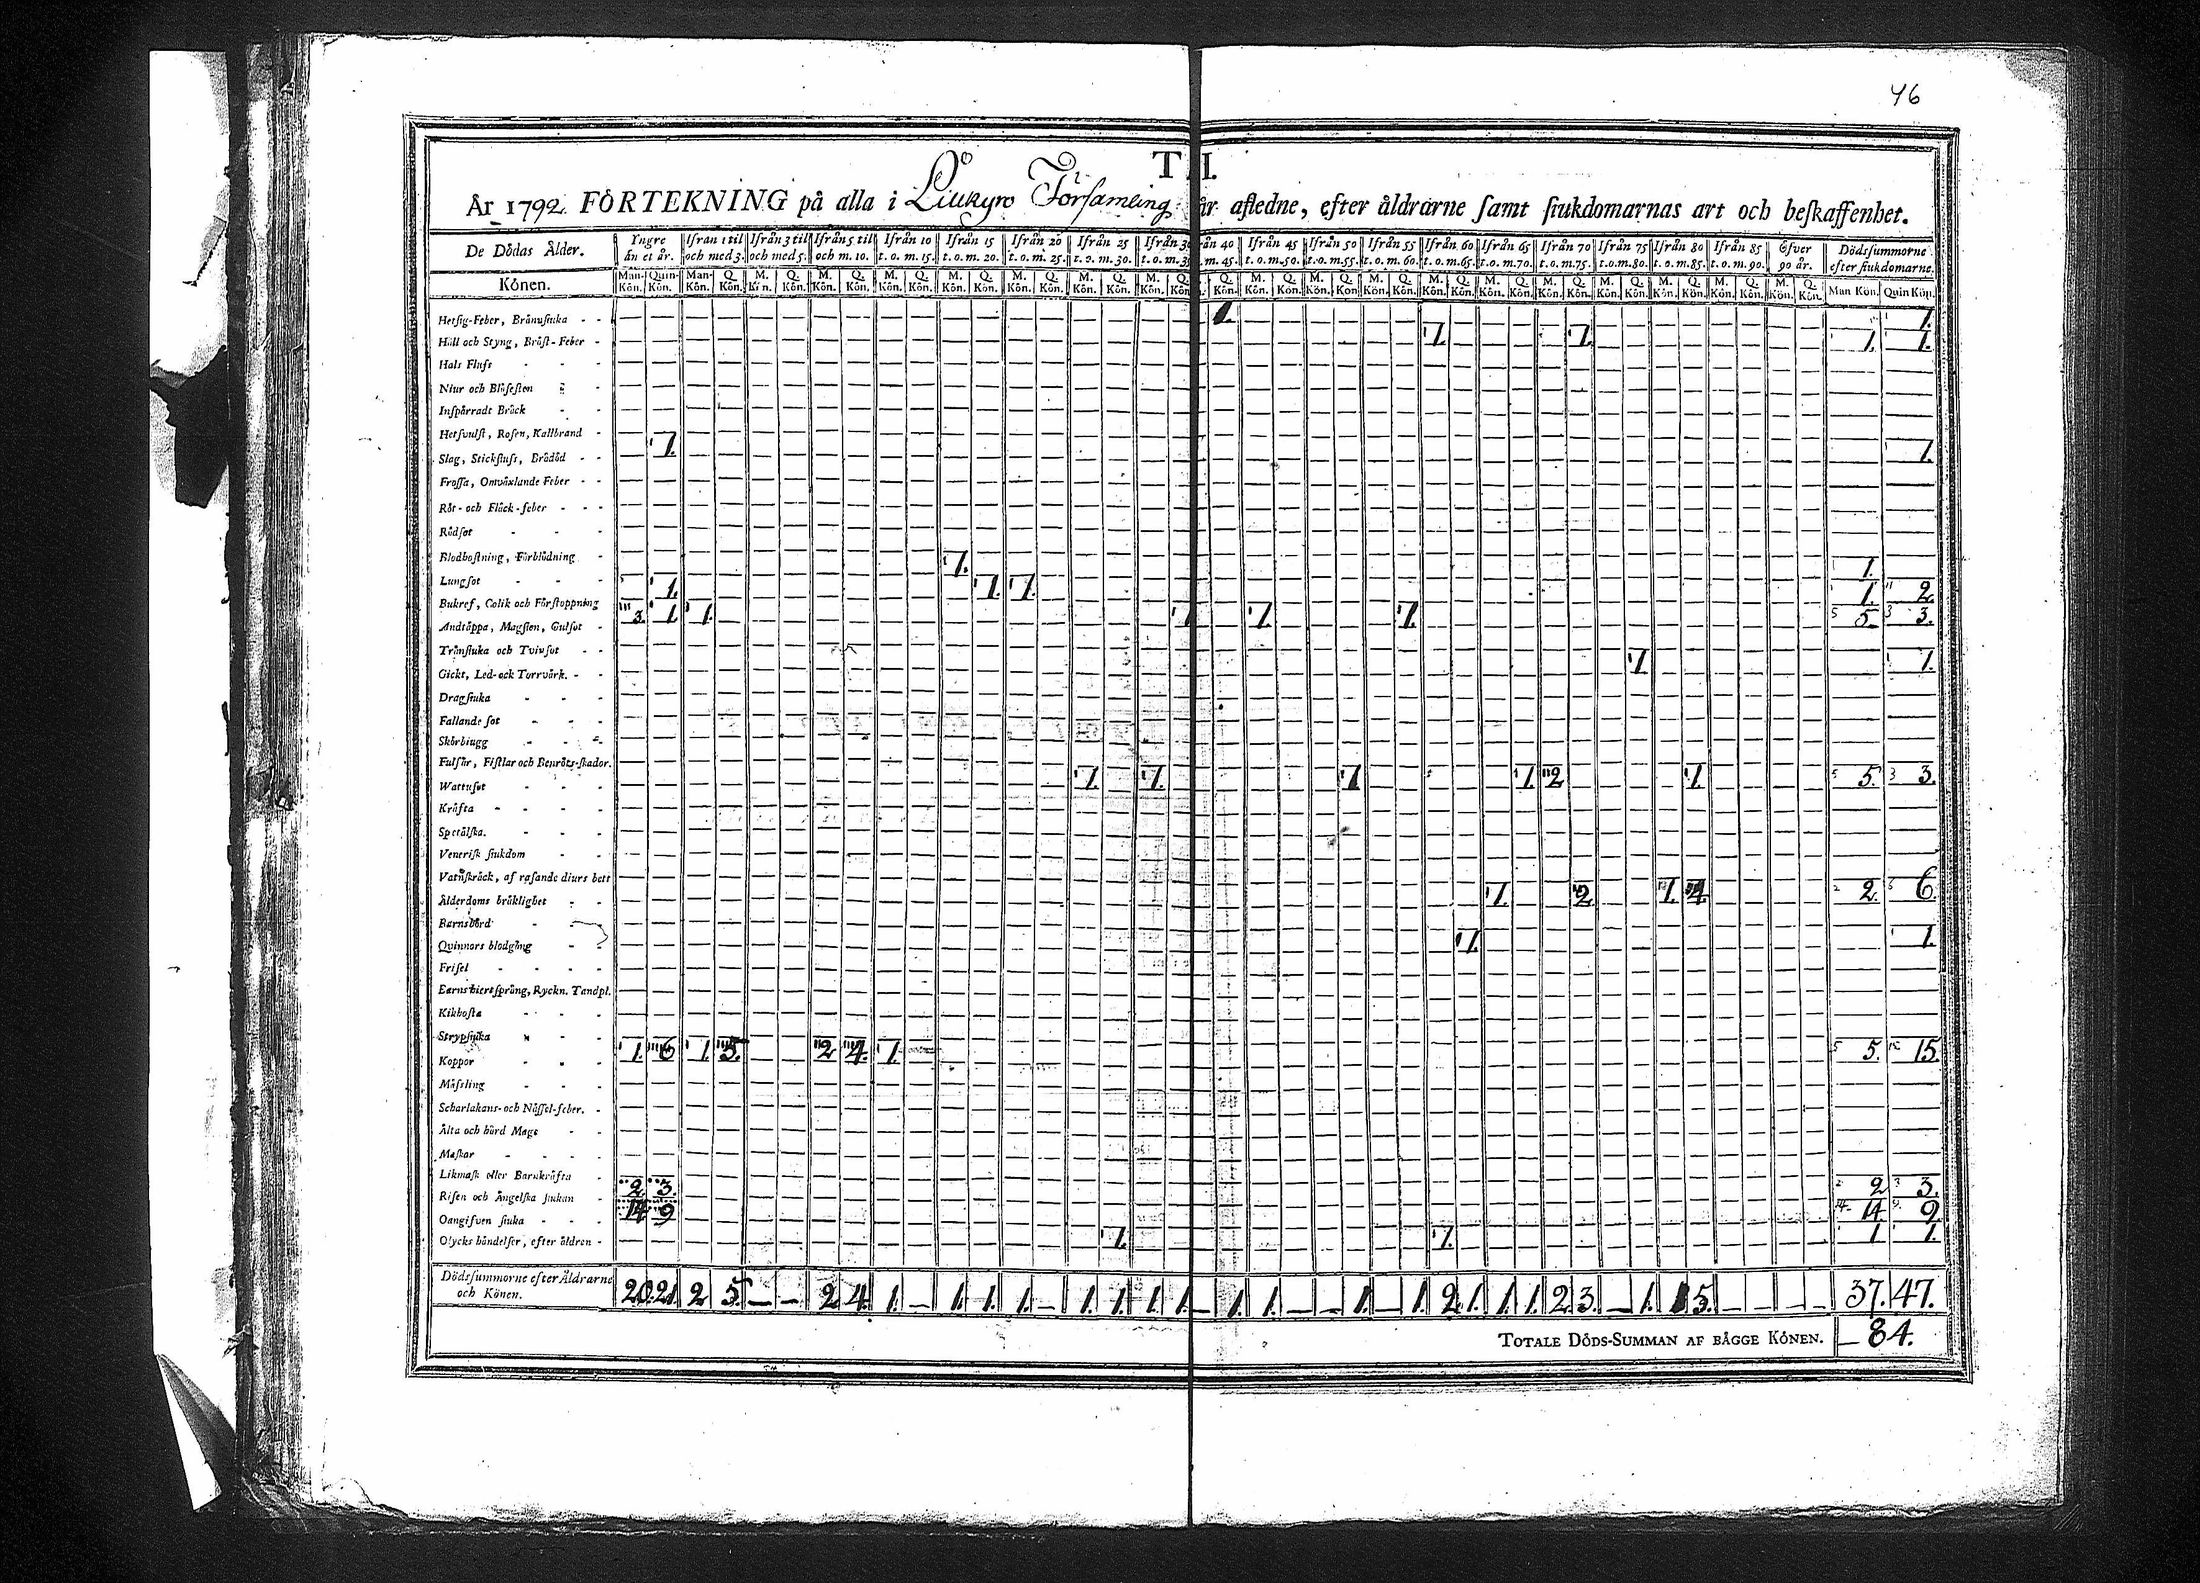 46
T. I.
År 1792 FÖRTEKNING på alla i Liukyro Församling år afledne, efter åldrarne samt siukdomarnas art och beskaffenhet.
De Dödas Ålder. Yngre än et år. Ifrån 1 til och med 3. Ifrån 3 til och med 5. Ifrån 5 til och m. 10. Ifrån 10 t. o. m. 15. Ifrån 15 t. o. m. 20. Ifrån 20 t. o. m. 25. Ifrån 25 t. o. m. 30. Ifrån 3 t. o. m. 35 rån 40 . m. 45. Ifrån 45 t. o. m. 50. Ifrån 50 t. o. m. 55. Ifrån 55 t. o. m. 60. Ifrån 60 t. o. m. 65. Ifrån 65 t. o. m. 70. Ifrån 70 t. o. m. 75. Ifrån 75 t. o. m. 80. Ifrån 80 t. o. m. 85. Ifrån 85 t. o. m. 90. Efver 90 år. Dödssummorne efter siukdomarne.
Könen. Man-Kön. Quin-Kön. Man-Kön. Q. Kön. M. Kön. Q. Kön. M. Kön. Q. Kön. M. Kön. Q. Kön. M. Kön. Q. Kön. M. Kön. Q. Kön. M. Kön. Q. Kön. M. Kön. Q. Kön. Q. Kön. M. Kön. Q. Kön. M. Kön. Q. Kön. M. Kön. Q. Kön. M. Kön. Q. Kön. M. Kön. Q. Kön. M. Kön. Q. Kön. M. Kön. Q. Kön. M. Kön. Q. Kön. M. Kön. Q. Kön. M. Kön. Q. Kön. Man Kön. Quin Kön.
Hetsig-Feber, Brännsiuka 1. 1.
Håll och Styng, Bröst-Feber 1. 1. 1. 1.
Hals Fluss
Niur och Blåsesten
Inspärradt Bråck
Hetsvulst, Rosen, Kallbrand
Slag, Stickfluss, Brådöd 1. 1.
Frossa, Omväxlande Feber
Röt- och Fläck-feber
Rödsot
Blodhostning, Förblödning
Lungsot 1. 1.
Bukref, Colik och Förstoppning 1. 1. 1. 1. 2.
Andtäppa, Magsien, Gulsot 3. 1. 1. 1 1. 1. 5. 3.
Trånsiuka och Tvinsot
Gickt, Led- och Torrvärk. 1. 1.
Dragsiuka
Fallande sot
Skörbiugg
Fulsår, Fistlar och Benröts-skador.
Wattusot 1. 1. 1. 1. 2 1. 5. 3.
Kräfta
Spetälska.
Venerisk siukdom
Vatnskräck, af rasande diurs bett
Ålderdoms bräklighet 1. 2 1. 4. 2. 6.
Barnsbörd
Quinnors blodgång 1. 1.
Frisel
Barns hiertsprång, Ryckn. Tandpl.
Kikhosta
Strypsiuka
Koppor 1. 6 1. 5. 2 4. 1. 5. 15.
Mässling
Scharlakans- och Nässel-feber.
Älta och hård Mage
Maskar
Likmask eller Barnkräfta
Risen och Ängelska siukan 2 3. 2 3.
Oangifven siuka 14 9 14 9.
Olycks händelser, efter åldren 1. 1. 1 1.
Dödssummorne efter Åldrarne och Könen. 20. 21 2 5. — — 2 4. 1. — 1. 1. 1. — 1. 1. 1. 1. — 1. 1. — — 1. — 1. 2 1. 1. 1. 2 3. — 1. 1 5. — — — — 37. 47.
TOTALE DÖDS-SUMMAN AF BÅGGE KÖNEN. 84.